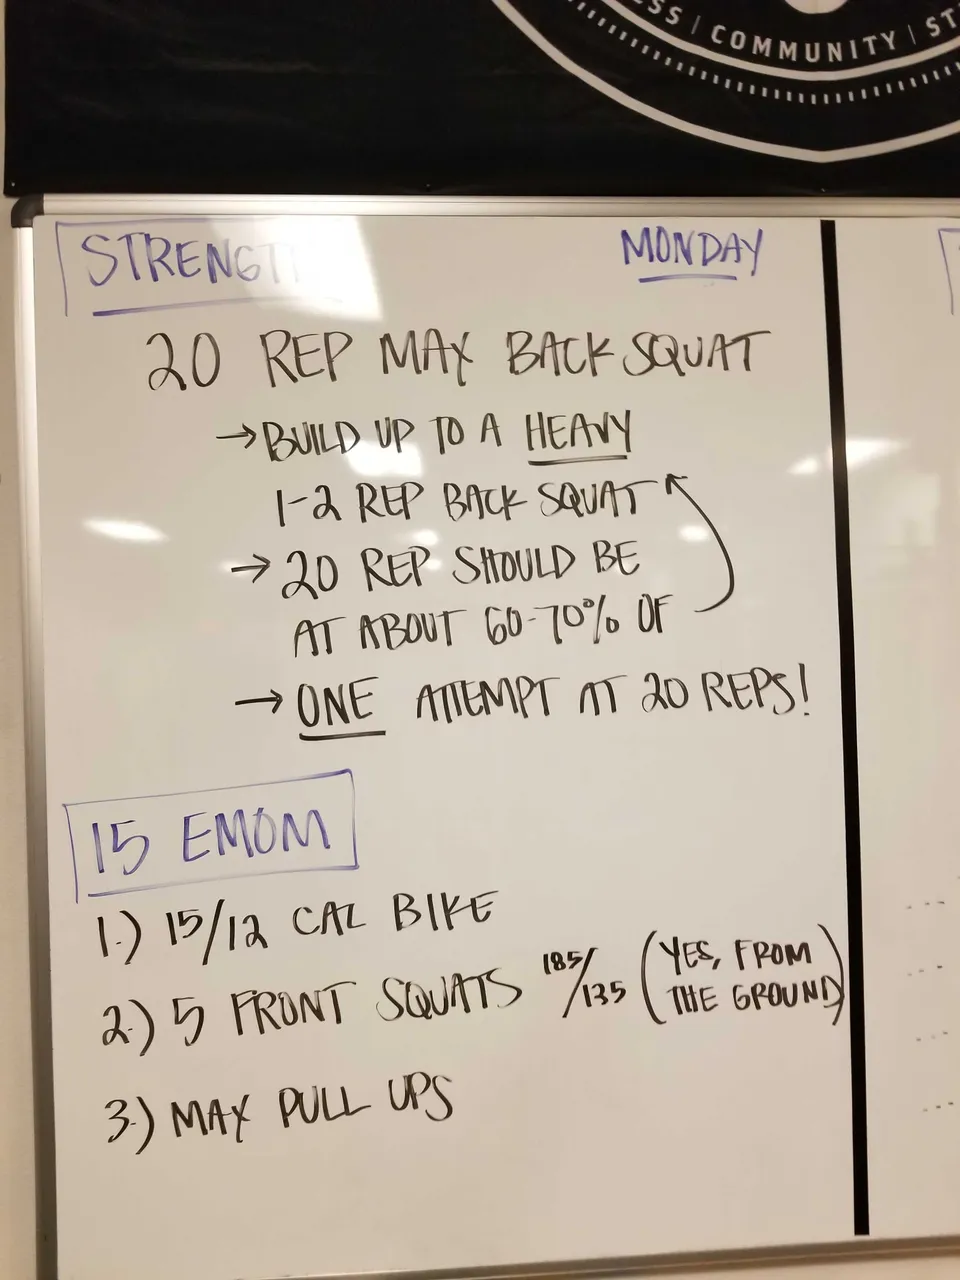 COMMUNITY
STRENGTH
MONDAY
20 REP MAX BACK SQUAT
→ BUILD UP TO A HEAVY
1-2 REP BACK SQUAT
→ 20 REP SHOULD BE
AT ABOUT 60-70% OF
→ ONE ATTEMPT AT 20 REPS!
15 EMOM
1.) 15/12 CAL BIKE
2.) 5 FRONT SQUATS 185/135 (YES, FROM
THE GROUND)
3.) MAX PULL UPS